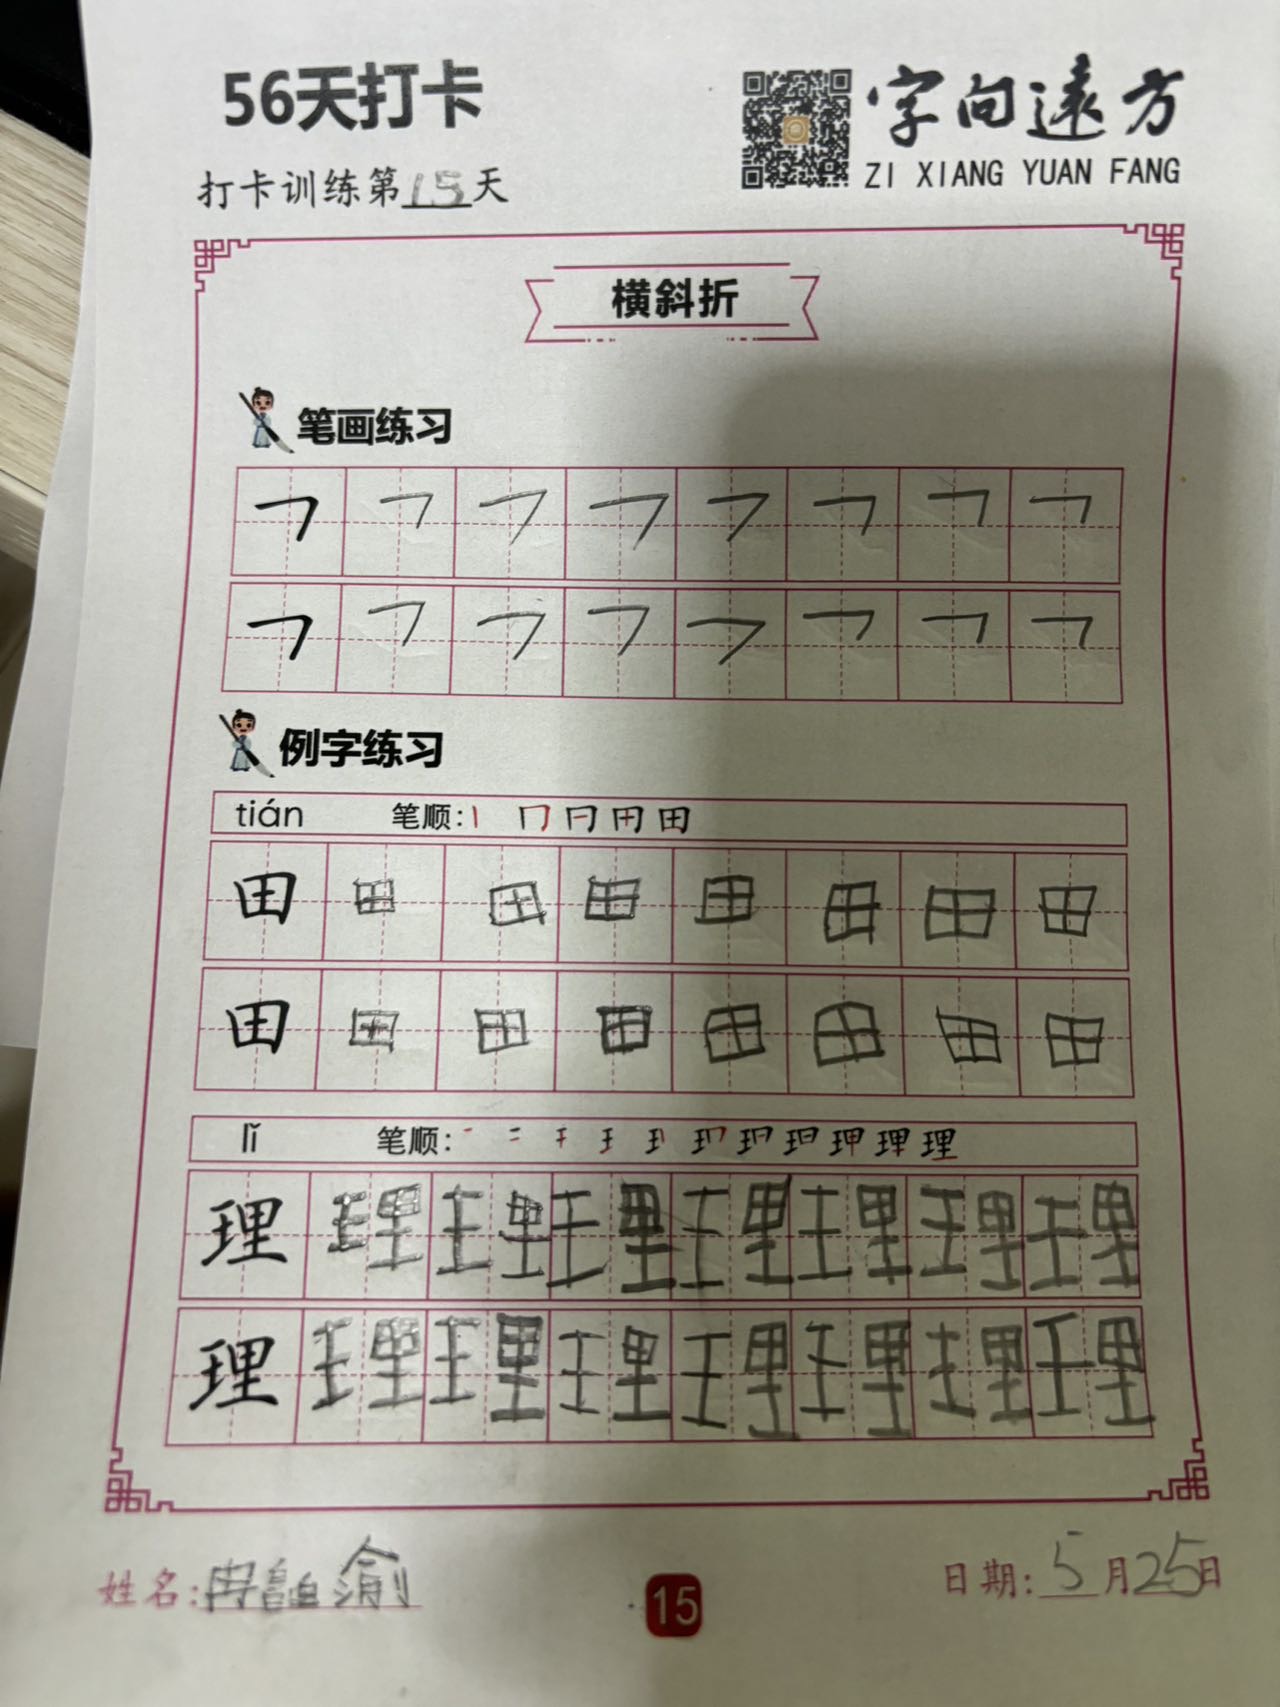 56天打卡
字向遠方
ZI XIANG YUAN FANG
打卡训练第15天
横斜折
笔画练习
㇕ ㇕ ㇕ ㇕ ㇕ ㇕ ㇕ ㇕
㇕ ㇕ ㇕ ㇕ ㇕ ㇕ ㇕ ㇕
例字练习
tián 笔顺: 丨 冂 冃 田 田
田 田 田 田 田 田 田 田
田 田 田 田 田 田 田 田
lǐ 笔顺:
理 理 理 理 理 理 理 理
理 理 理 理 理 理 理 理
姓名:冉 渝
15
日期:5月25日